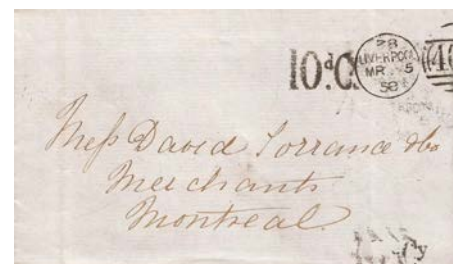 10d.C.
LIVERPOOL
MR 5
58
Mess David Torrance &Co
Merchants
Montreal